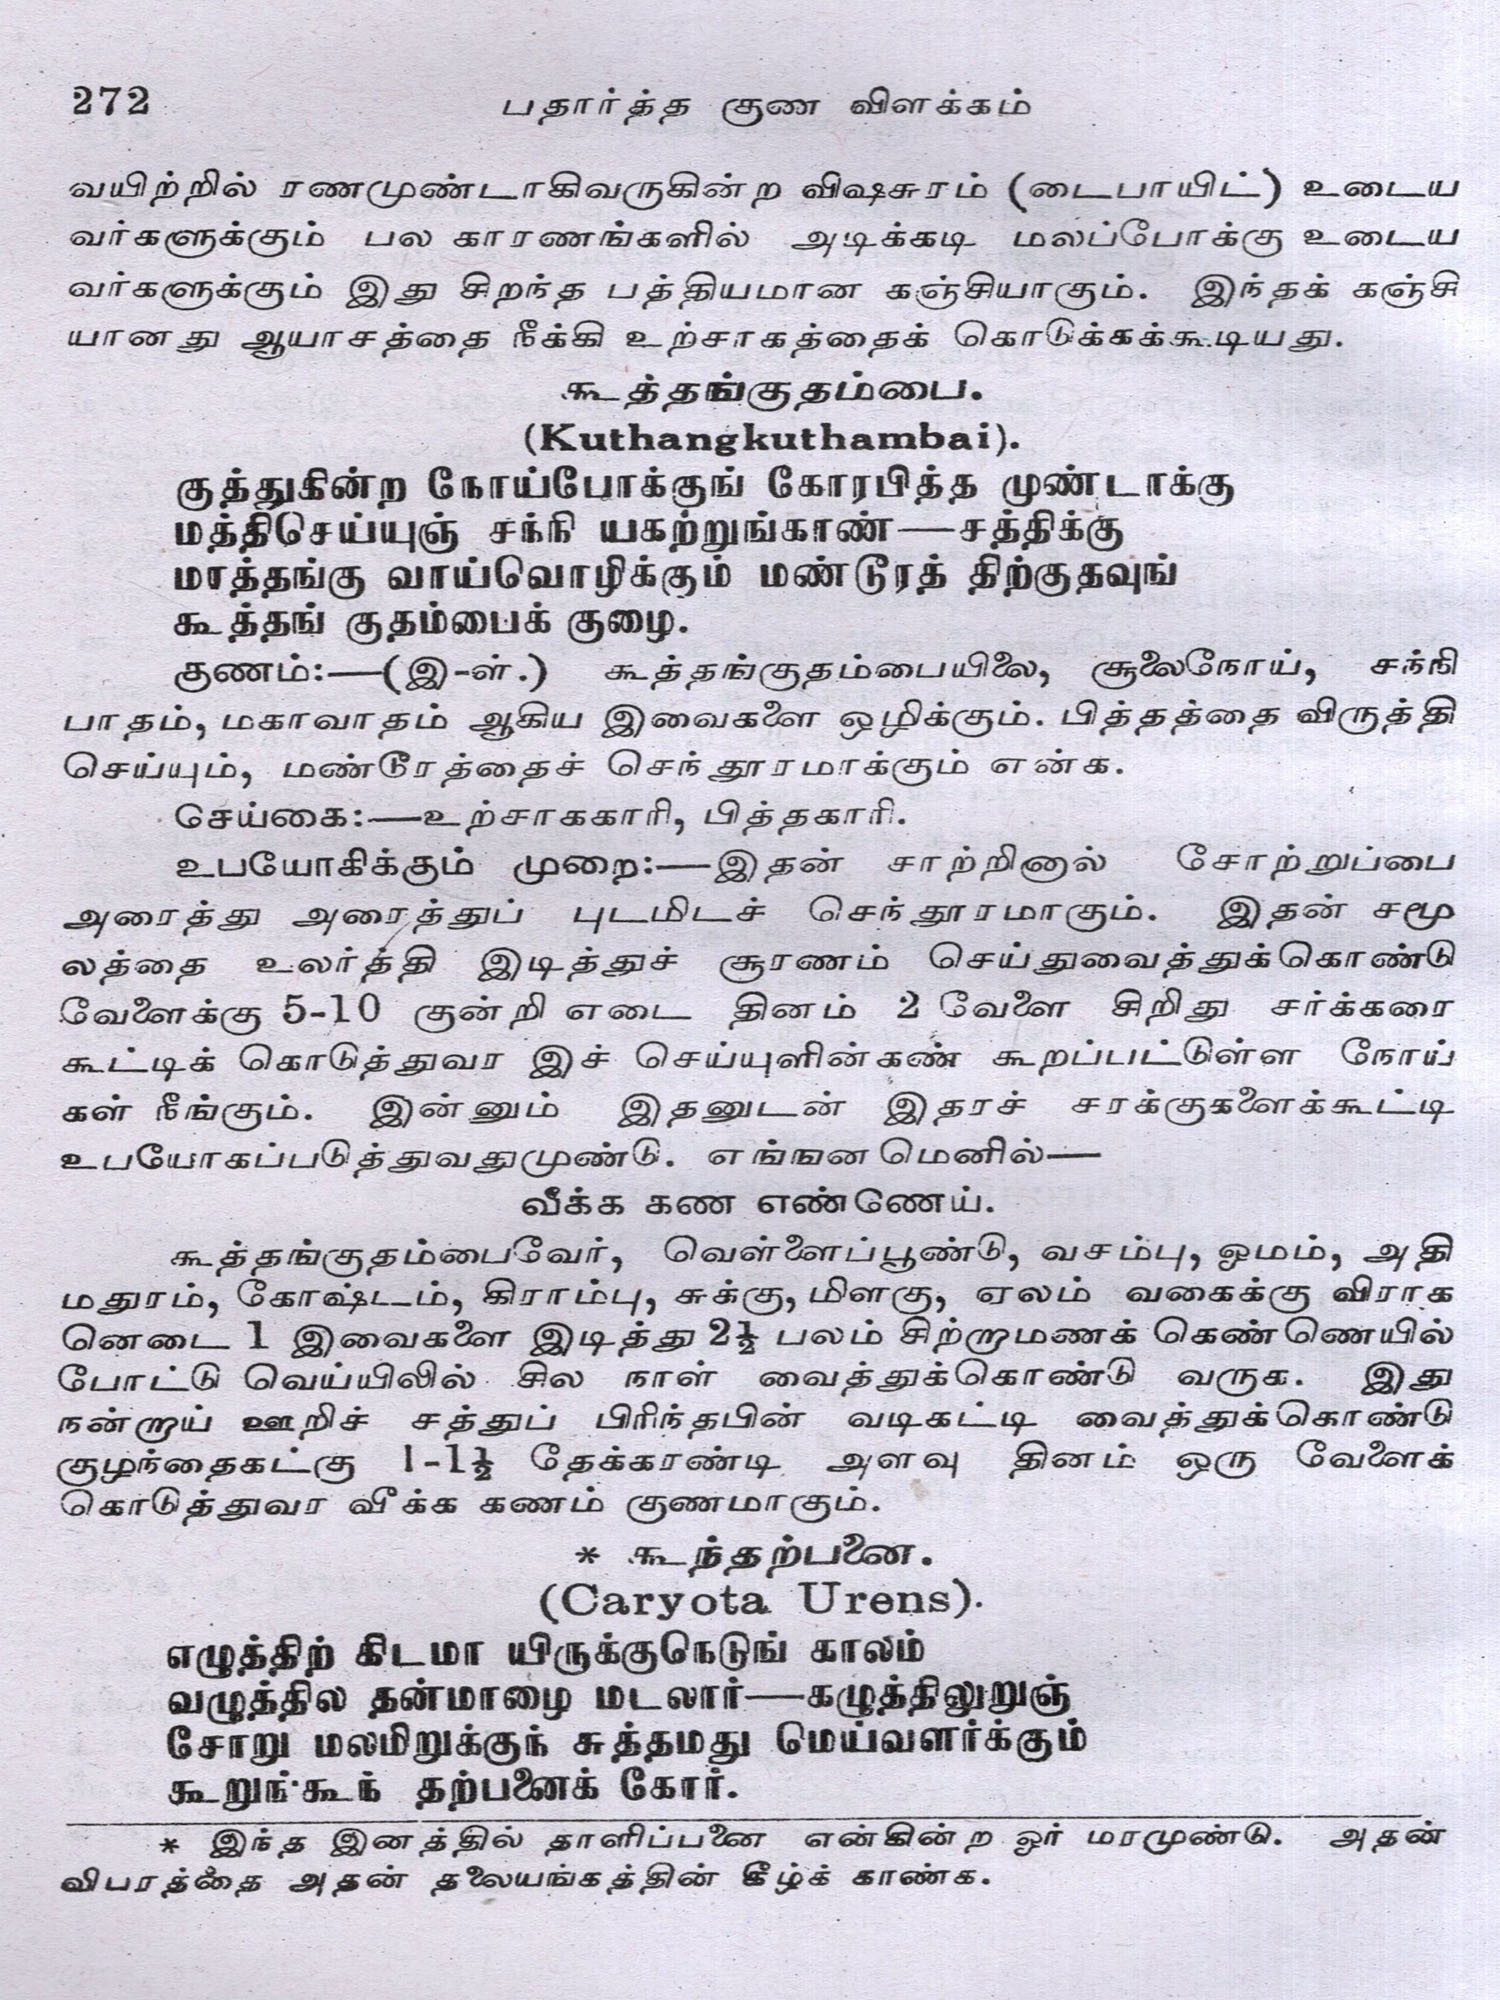 272 பதார்த்த குண விளக்கம்
வயிற்றில் ரணமுண்டாகிவருகின்ற விஷசுரம் (டைபாயிட்) உடைய
வர்களுக்கும் பல காரணங்களில் அடிக்கடி மலப்போக்கு உடைய
வர்களுக்கும் இது சிறந்த பத்தியமான கஞ்சியாகும். இந்தக் கஞ்சி
யானது ஆயாசத்தை நீக்கி உற்சாகத்தைக் கொடுக்கக்கூடியது.
கூத்தங்குதம்பை.
(Kuthangkuthambai).
குத்துகின்ற நோய்போக்குங் கோரபித்த முண்டாக்கு
மத்திசெய்யுஞ் சந்நி யகற்றுங்காண்—சத்திக்கு
மாத்தங்கு வாய்வொழிக்கும் மண்டூரத் திற்குதவுங்
கூத்தங் குதம்பைக் குழை.
குணம்:—(இ-ள்.) கூத்தங்குதம்பையிலை, சூலைநோய், சந்நி
பாதம், மகாவாதம் ஆகிய இவைகளை ஒழிக்கும். பித்தத்தை விருத்தி
செய்யும், மண்டூரத்தைச் செந்தூரமாக்கும் என்க.
செய்கை:—உற்சாககாரி, பித்தகாரி.
உபயோகிக்கும் முறை:—இதன் சாற்றினால் சோற்றுப்பை
அரைத்து அரைத்துப் புடமிடச் செந்தூரமாகும். இதன் சமூ
லத்தை உலர்த்தி இடித்துச் சூரணம் செய்துவைத்துக்கொண்டு
வேளைக்கு 5-10 குன்றி எடை தினம் 2 வேளை சிறிது சர்க்கரை
கூட்டிக் கொடுத்துவர இச் செய்யுளின்கண் கூறப்பட்டுள்ள நோய்
கள் நீங்கும். இன்னும் இதனுடன் இதரச் சரக்குகளைக்கூட்டி
உபயோகப்படுத்துவதுமுண்டு. எங்ஙனமெனில்—
வீக்க கண எண்ணெய்.
கூத்தங்குதம்பைவேர், வெள்ளைப்பூண்டு, வசம்பு, ஓமம், அதி
மதுரம், கோஷ்டம், கிராம்பு, சுக்கு, மிளகு, ஏலம் வகைக்கு விராக
னெடை 1 இவைகளை இடித்து 2½ பலம் சிற்றாமணக் கெண்ணெயில்
போட்டு வெய்யிலில் சில நாள் வைத்துக்கொண்டு வருக. இது
நன்றாய் ஊறிச் சத்துப் பிரிந்தபின் வடிகட்டி வைத்துக்கொண்டு
குழந்தைகட்கு 1-1½ தேக்கரண்டி அளவு தினம் ஒரு வேளைக்
கொடுத்துவர வீக்க கணம் குணமாகும்.
* கூந்தற்பனை.
(Caryota Urens).
எழுத்திற் கிடமா யிருக்குநெடுங் காலம்
வழுத்தில தன்மாழை மடலார்—கழுத்திலுறுஞ்
சோறு மலமிறுக்குந் சுத்தமது மெய்வளர்க்கும்
கூறுங்கூந் தற்பனைக் கோர்.
* இந்த இனத்தில் தாளிப்பனை என்கின்ற ஓர் மரமுண்டு. அதன்
விபரத்தை அதன் தலையங்கத்தின் கீழ்க் காண்க.